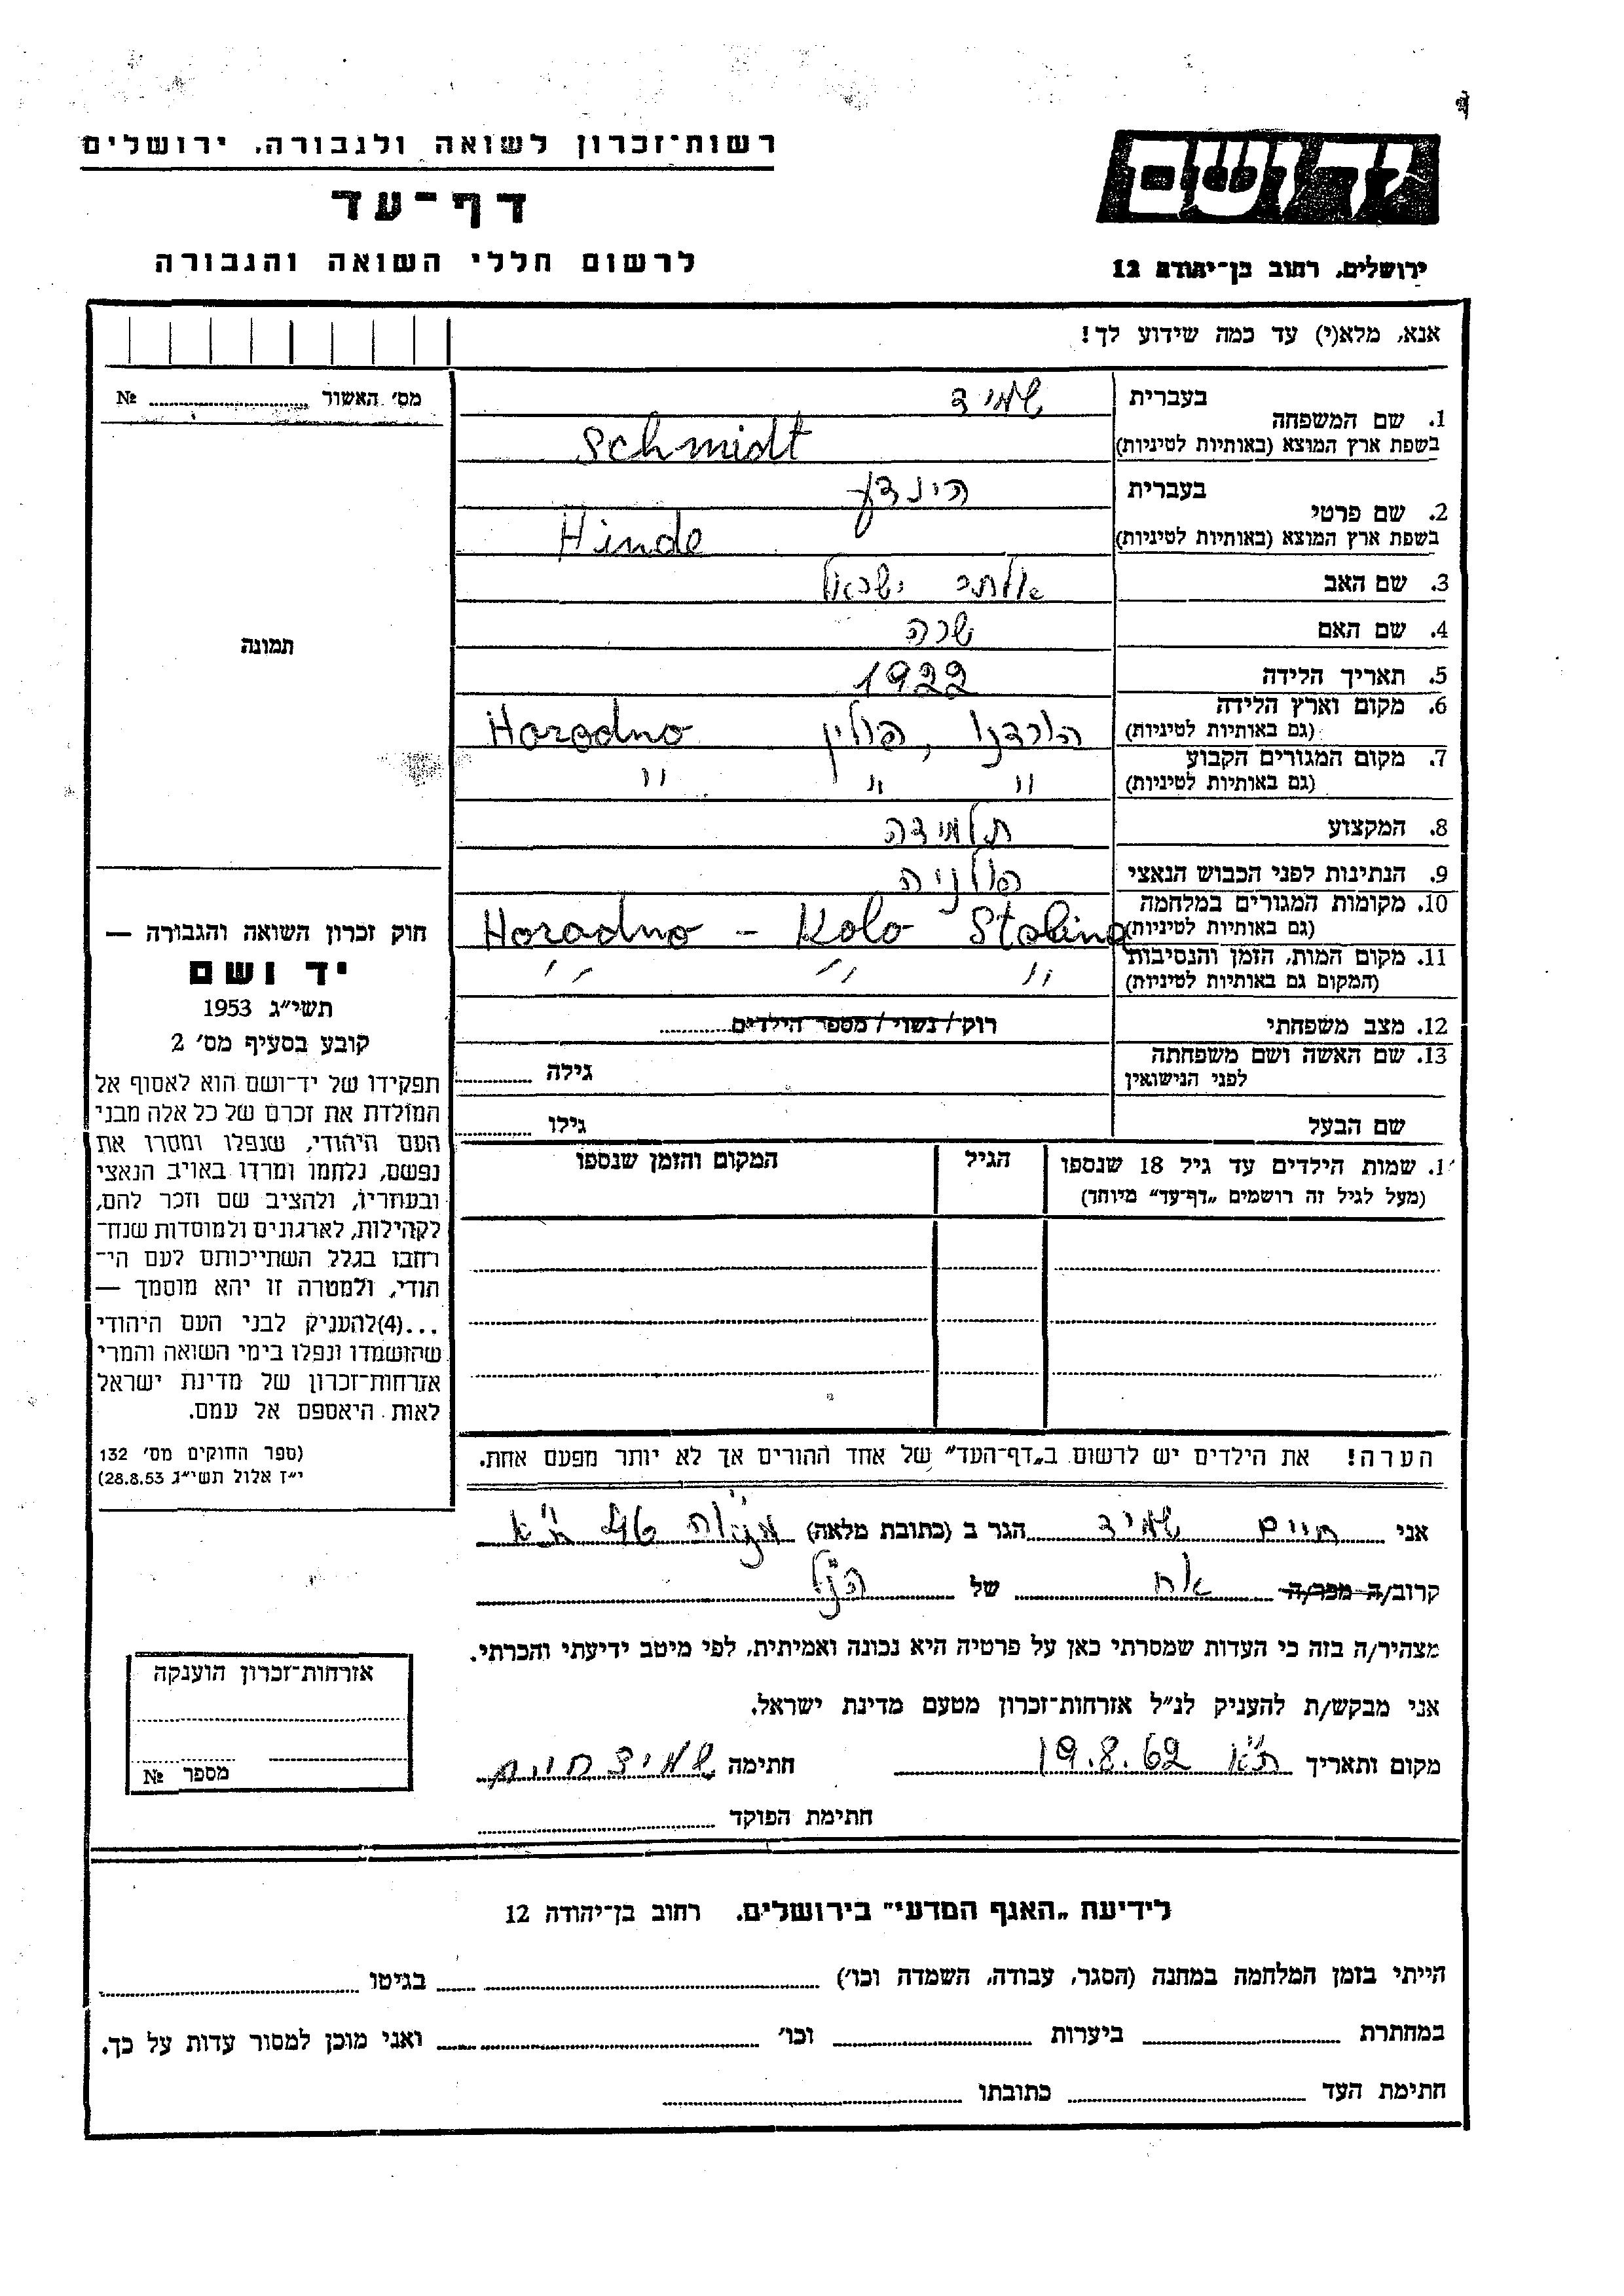 רשות־זכרון לשואה ולגבורה, ירושלים
דף־עד
לרשום חללי השואה והגבורה
יד ושם
ירושלים, רחוב בן־יהודה 12
אנא, מלא(י) עד כמה שידוע לך!
מס׳ האשור № 
תמונה
חוק זכרון השואה והגבורה —
יד ושם
תשי״ג 1953
קובע בסעיף מס׳ 2
תפקידו של יד־ושם הוא לאסוף אל
המולדת את זכרם של כל אלה מבני
העם היהודי, שנפלו ומסרו את
נפשם, נלחמו ומרדו באויב הנאצי
ובעוזריו, ולהציב שם וזכר להם,
לקהילות, לארגונים ולמוסדות שנח־
רבו בגלל השתייכותם לעם הי־
הודי, ולמטרה זו יהא מוסמך —
...(4)להעניק לבני העם היהודי
שהושמדו ונפלו בימי השואה והמרי
אזרחות־זכרון של מדינת ישראל
לאות היאספם אל עמם.
(ספר החוקים מס׳ 132
י״ז אלול תשי״ג 28.8.53)
בעברית שמיד
1. שם המשפחה
בשפת ארץ המוצא (באותיות לטיניות) Schmidt
בעברית הינדע
2. שם פרטי
בשפת ארץ המוצא (באותיות לטיניות) Hinde
3. שם האב אלתר ישראל
4. שם האם שרה
5. תאריך הלידה 1922
6. מקום וארץ הלידה הורדנו, פולין Horodno
(גם באותיות לטיניות)
7. מקום המגורים הקבוע " " "
(גם באותיות לטיניות)
8. המקצוע תלמידה
9. הנתינות לפני הכבוש הנאצי פולניה
10. מקומות המגורים במלחמה Horodno - Kolo Stolina
(גם באותיות לטיניות)
11. מקום המות, הזמן והנסיבות " " "
(המקום גם באותיות לטיניות)
12. מצב משפחתי רווק/נשוי/מספר הילדים
13. שם האשה ושם משפחתה גילה
לפני הנישואין
שם הבעל גילו
1. שמות הילדים עד גיל 18 שנספו הגיל המקום והזמן שנספו
(מעל לגיל זה רושמים „דף־עד” מיוחד)
הערה! את הילדים יש לרשום ב„דף־העד” של אחד ההורים אך לא יותר מפעם אחת.
אני חיים שמיד הגר ב (כתובת מלאה) 46 ת"א
קרוב/ה מכר/ה אח של הנ"ל
מצהיר/ה בזה כי העדות שמסרתי כאן על פרטיה היא נכונה ואמיתית, לפי מיטב ידיעתי והכרתי.
אני מבקש/ת להעניק לנ״ל אזרחות־זכרון מטעם מדינת ישראל.
מקום ותאריך ת"א 19.8.62 חתימה שמיד חיים
חתימת הפוקד
אזרחות־זכרון הוענקה
מספר №
לידיעת „האגף המדעי” בירושלים. רחוב בן־יהודה 12
הייתי בזמן המלחמה במחנה (הסגר, עבודה, השמדה וכו׳) בגיטו
במחתרת ביערות וכו׳ ואני מוכן למסור עדות על כך.
חתימת העד כתובתו